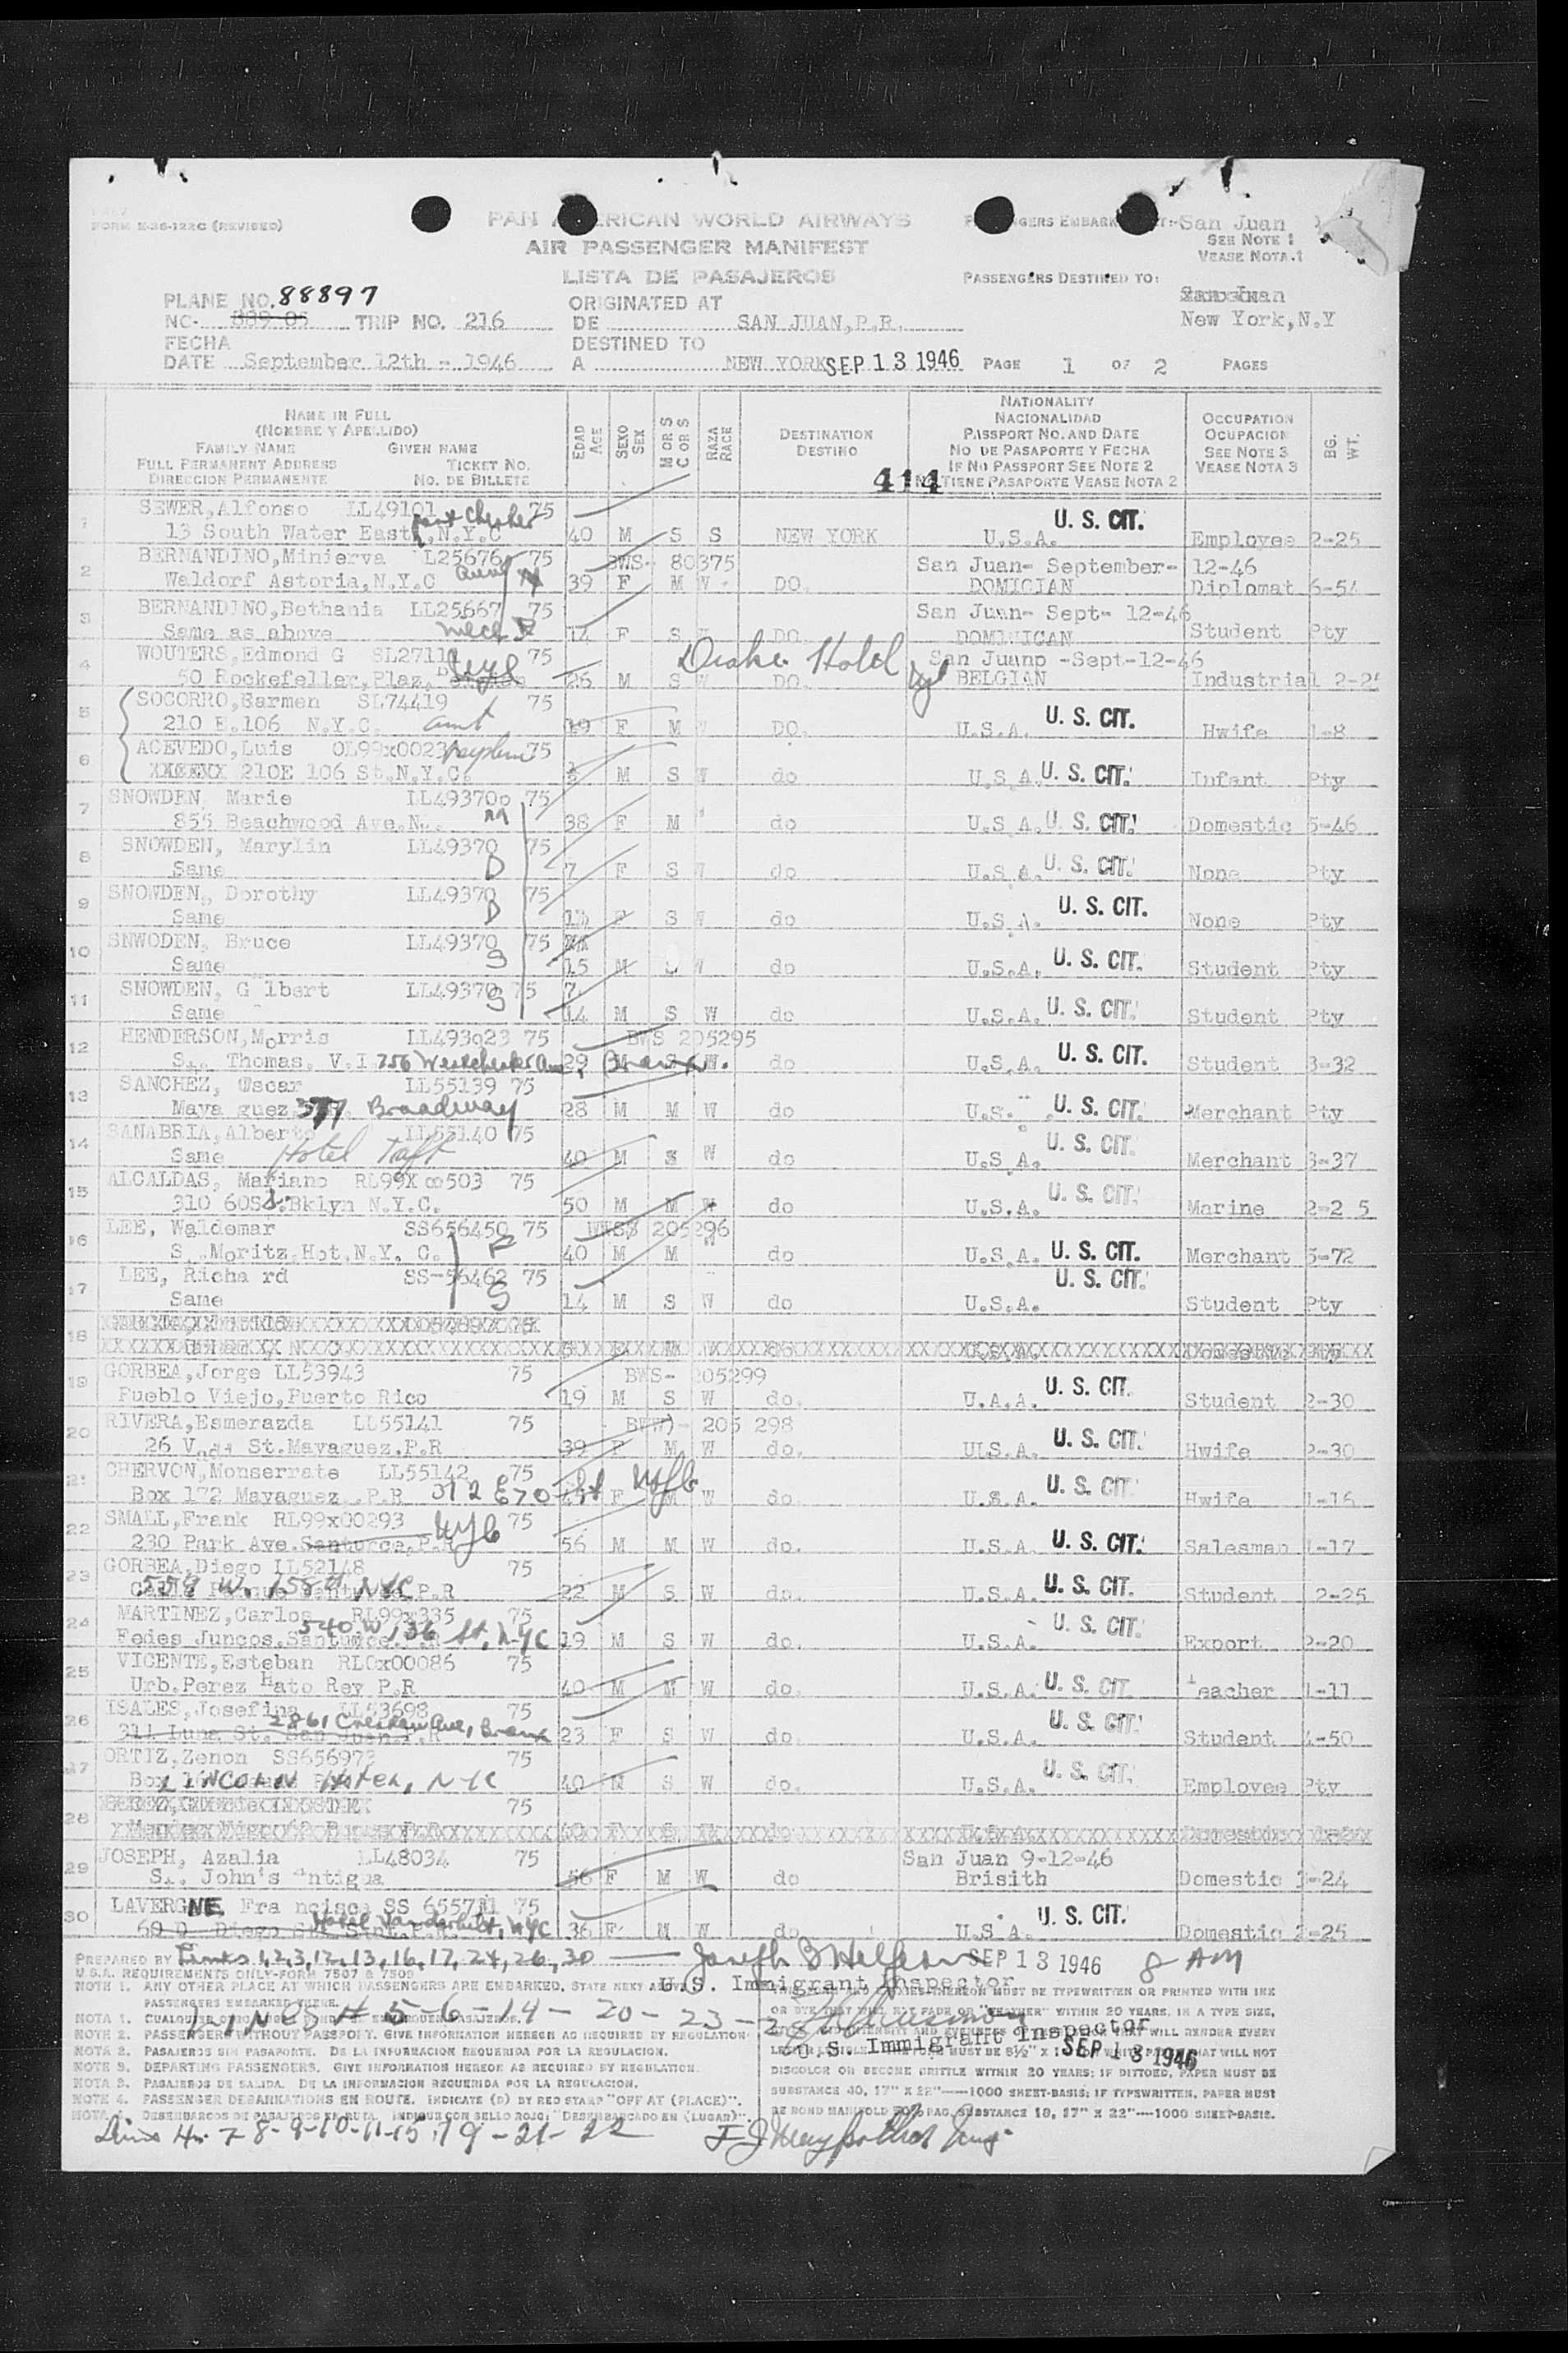 FORM E-36-122C (REVISED)
PAN AMERICAN WORLD AIRWAYS
AIR PASSENGER MANIFEST
LISTA DE PASAJEROS
San Juan
SEE NOTE 1
VEASE NOTA 1
PASSENGERS DESTINED TO:
New York,N.Y
PLANE NO. 88897
NO. TRIP NO. 216
ORIGINATED AT
DE SAN JUAN,P.R.
FECHA
DATE September 12th - 1946
DESTINED TO
A NEW YORK SEP 13 1946 PAGE 1 OF 2 PAGES
NAME IN FULL
(NOMBRE Y APELLIDO)
FAMILY NAME GIVEN NAME
FULL PERMANENT ADDRESS TICKET NO.
DIRECCION PERMANENTE NO. DE BILLETE
EDAD AGE
SEXO SEX
M OR S C OR S
RAZA RACE
DESTINATION
DESTINO
NATIONALITY
NACIONALIDAD
PASSPORT NO. AND DATE
NO DE PASAPORTE Y FECHA
IF NO PASSPORT SEE NOTE 2
TIENE PASAPORTE VEASE NOTA 2
414
OCCUPATION
OCUPACION
SEE NOTE 3
VEASE NOTA 3
BG. WT.
SEWER,Alfonso LL49101 75
1 13 South Water East,N.Y.C 40 M S S NEW YORK U.S.A. U. S. CIT. Employee 2-25
BERNANDINO,Minierva L25676 75 BWS- 80375 San Juan- September- 12-46
2 Waldorf Astoria,N.Y.C 39 F M W DO. DOMICIAN Diplomat 6-54
BERNANDINO,Bethania LL25667 75 San Juan- Sept- 12-46
3 Same as above 14 F S DO DOMINICAN Student Pty
WOUTERS,Edmond G 75 Drake Hotel San Juanp -Sept-12-46
4 50 Rockefeller,Plaz, 26 M S W DO. BELGIAN Industrial
SOCORRO,Carmen SL74419 75
5 210 E.106 N.Y.C. aunt 19 F M W DO. U.S.A. U. S. CIT. Hwife 1-8
ACEVEDO,Luis nephew 75
6 210E 106 St.N.Y.C. M S W do U.S.A. U. S. CIT. Infant Pty
SNOWDEN, Marie LL49370 75
7 855 Beachwood Ave.N. M 38 F M do U.S.A. U. S. CIT. Domestic 5-46
SNOWDEN, Marylin LL49370 75
8 Same D 7 F S W do U.S.A. U. S. CIT. None Pty
SNOWDEN, Dorothy LL49370 75
9 Same D 13 F S W do U.S.A. U. S. CIT. None Pty
SNWODEN, Bruce LL49370 75
10 Same S 15 M S W do U.S.A. U. S. CIT. Student Pty
SNOWDEN, G lbert LL49370 75
11 Same S 14 M S W do U.S.A. U. S. CIT. Student Pty
HENDERSON,Morris LL493023 75 BWS 205295
12 St. Thomas, V.I 756 Westchester Ave, Bronx 29 M S W. do U.S.A. U. S. CIT. Student 3-32
SANCHEZ, Oscar LL55139 75
13 Maya guez 377 Broadway 28 M M W do U.S. U. S. CIT. Merchant Pty
SANABRIA,Alberto LL55140 75
14 Same Hotel Taft 40 M W do U.S.A. U. S. CIT. Merchant 3-37
ALCALDAS, Mariano RL99X00503 75
15 310 60St.Bklyn N.Y.C. 50 M M W do U.S.A. U. S. CIT. Marine 2-2 5
LEE, Waldemar SS656450 75 205296
16 S .Moritz,Hot.N.Y. C. F 40 M M W do U.S.A. U. S. CIT. Merchant 5-72
LEE, Richa rd SS-56462 75
17 Same S 14 M S W do U.S.A. U. S. CIT. Student Pty
18
GORBEA,Jorge LL53943 75 BWS- 205299
19 Pueblo Viejo,Puerto Rico 19 M S W do U.A.A. U. S. CIT. Student 2-30
RIVERA,Esmerazda LL55141 75 205 298
20 26 St.Mayaguez.P.R 39 F M W do. U.S.A. U. S. CIT. Hwife 2-30
CHERVON,Monserrate LL55142 75
21 Box 172 Mayaguez .P.R F M W do. U.S.A. U. S. CIT. Hwife 1-16
SMALL,Frank RL99x00293 75
22 230 Park Ave.Santurce,P.R NYC 56 M M W do. U.S.A. U. S. CIT. Salesman 1-17
GORBEA,Diego LL52148 75
23 559 W. 158th NYC P.R 22 M S W do. U.S.A. U. S. CIT. Student 2-25
MARTINEZ,Carlos RL99x335 75
24 Fedes Juncos,Santurce.P.R 540 W 136 St, NYC 19 M S W do. U.S.A. U. S. CIT. Export 2-20
VICENTE,Esteban RL0x00086 75
25 Urb.Perez Hato Rey P.R 40 M M W do. U.S.A. U. S. CIT. Teacher 1-11
ISALES,Josefina LL53698 75
26 311 Luna St. San Juan.P.R 23 F S W do. U.S.A. U. S. CIT. Student 4-50
ORTIZ,Zenon SS656973 75
27 LINCOLN Hotel, NYC 40 M S W do. U.S.A. U. S. CIT. Employee Pty
28 75
JOSEPH, Azalia LL48034 75 San Juan 9-12-46
29 St. John's Antigua 56 F M W do Brisith Domestic 3-24
LAVERGNE, Fra ncisca SS 655711 75
30 Hotel Vanderbilt, NYC 36 F M W do U.S.A. U. S. CIT. Domestic 2-25
PREPARED BY Lines 1,2,3,12,13,16,17,24,26,30 SEP 13 1946 8 AM
U.S.A. REQUIREMENTS ONLY-FORM 7507 & 7509 U.S. Immigrant Inspector
NOTE 1. ANY OTHER PLACE AT WHICH PASSENGERS ARE EMBARKED, STATE NEXT ABOVE
PASSENGERS EMBARKED THERE.
LINES # 5-6-14- 20- 23-
NOTE 2. PASSENGERS WITHOUT PASSPORT. GIVE INFORMATION HEREON AS REQUIRED BY REGULATION
NOTA 2. PASAJEROS SIN PASAPORTE. DE LA INFORMACION REQUERIDA POR LA REGULACION.
NOTE 3. DEPARTING PASSENGERS. GIVE INFORMATION HEREON AS REQUIRED BY REGULATION.
NOTA 3. PASAJEROS DE SALIDA. DE LA INFORMACION REQUERIDA POR LA REGULACION.
NOTE 4. PASSENGER DEBARKATIONS EN ROUTE. INDICATE (D) BY RED STAMP "OFF AT (PLACE)".
MUST BE TYPEWRITTEN OR PRINTED WITH INK
WITHIN 20 YEARS, IN A TYPE SIZE,
U. S. Immigrant Inspector
SEP 13 1946
DISCOLOR OR BECOME BRITTLE WITHIN 20 YEARS; IF DITTOED, PAPER MUST BE
SUBSTANCE 40, 17" X 22"——1000 SHEET-BASIS; IF TYPEWRITTEN, PAPER MUST
BE BOND MANIFOLD 50% RAG, SUBSTANCE 18, 17" X 22"——1000 SHEET-BASIS.
Lines 4-7-8-9-10-11-15-19-21-22